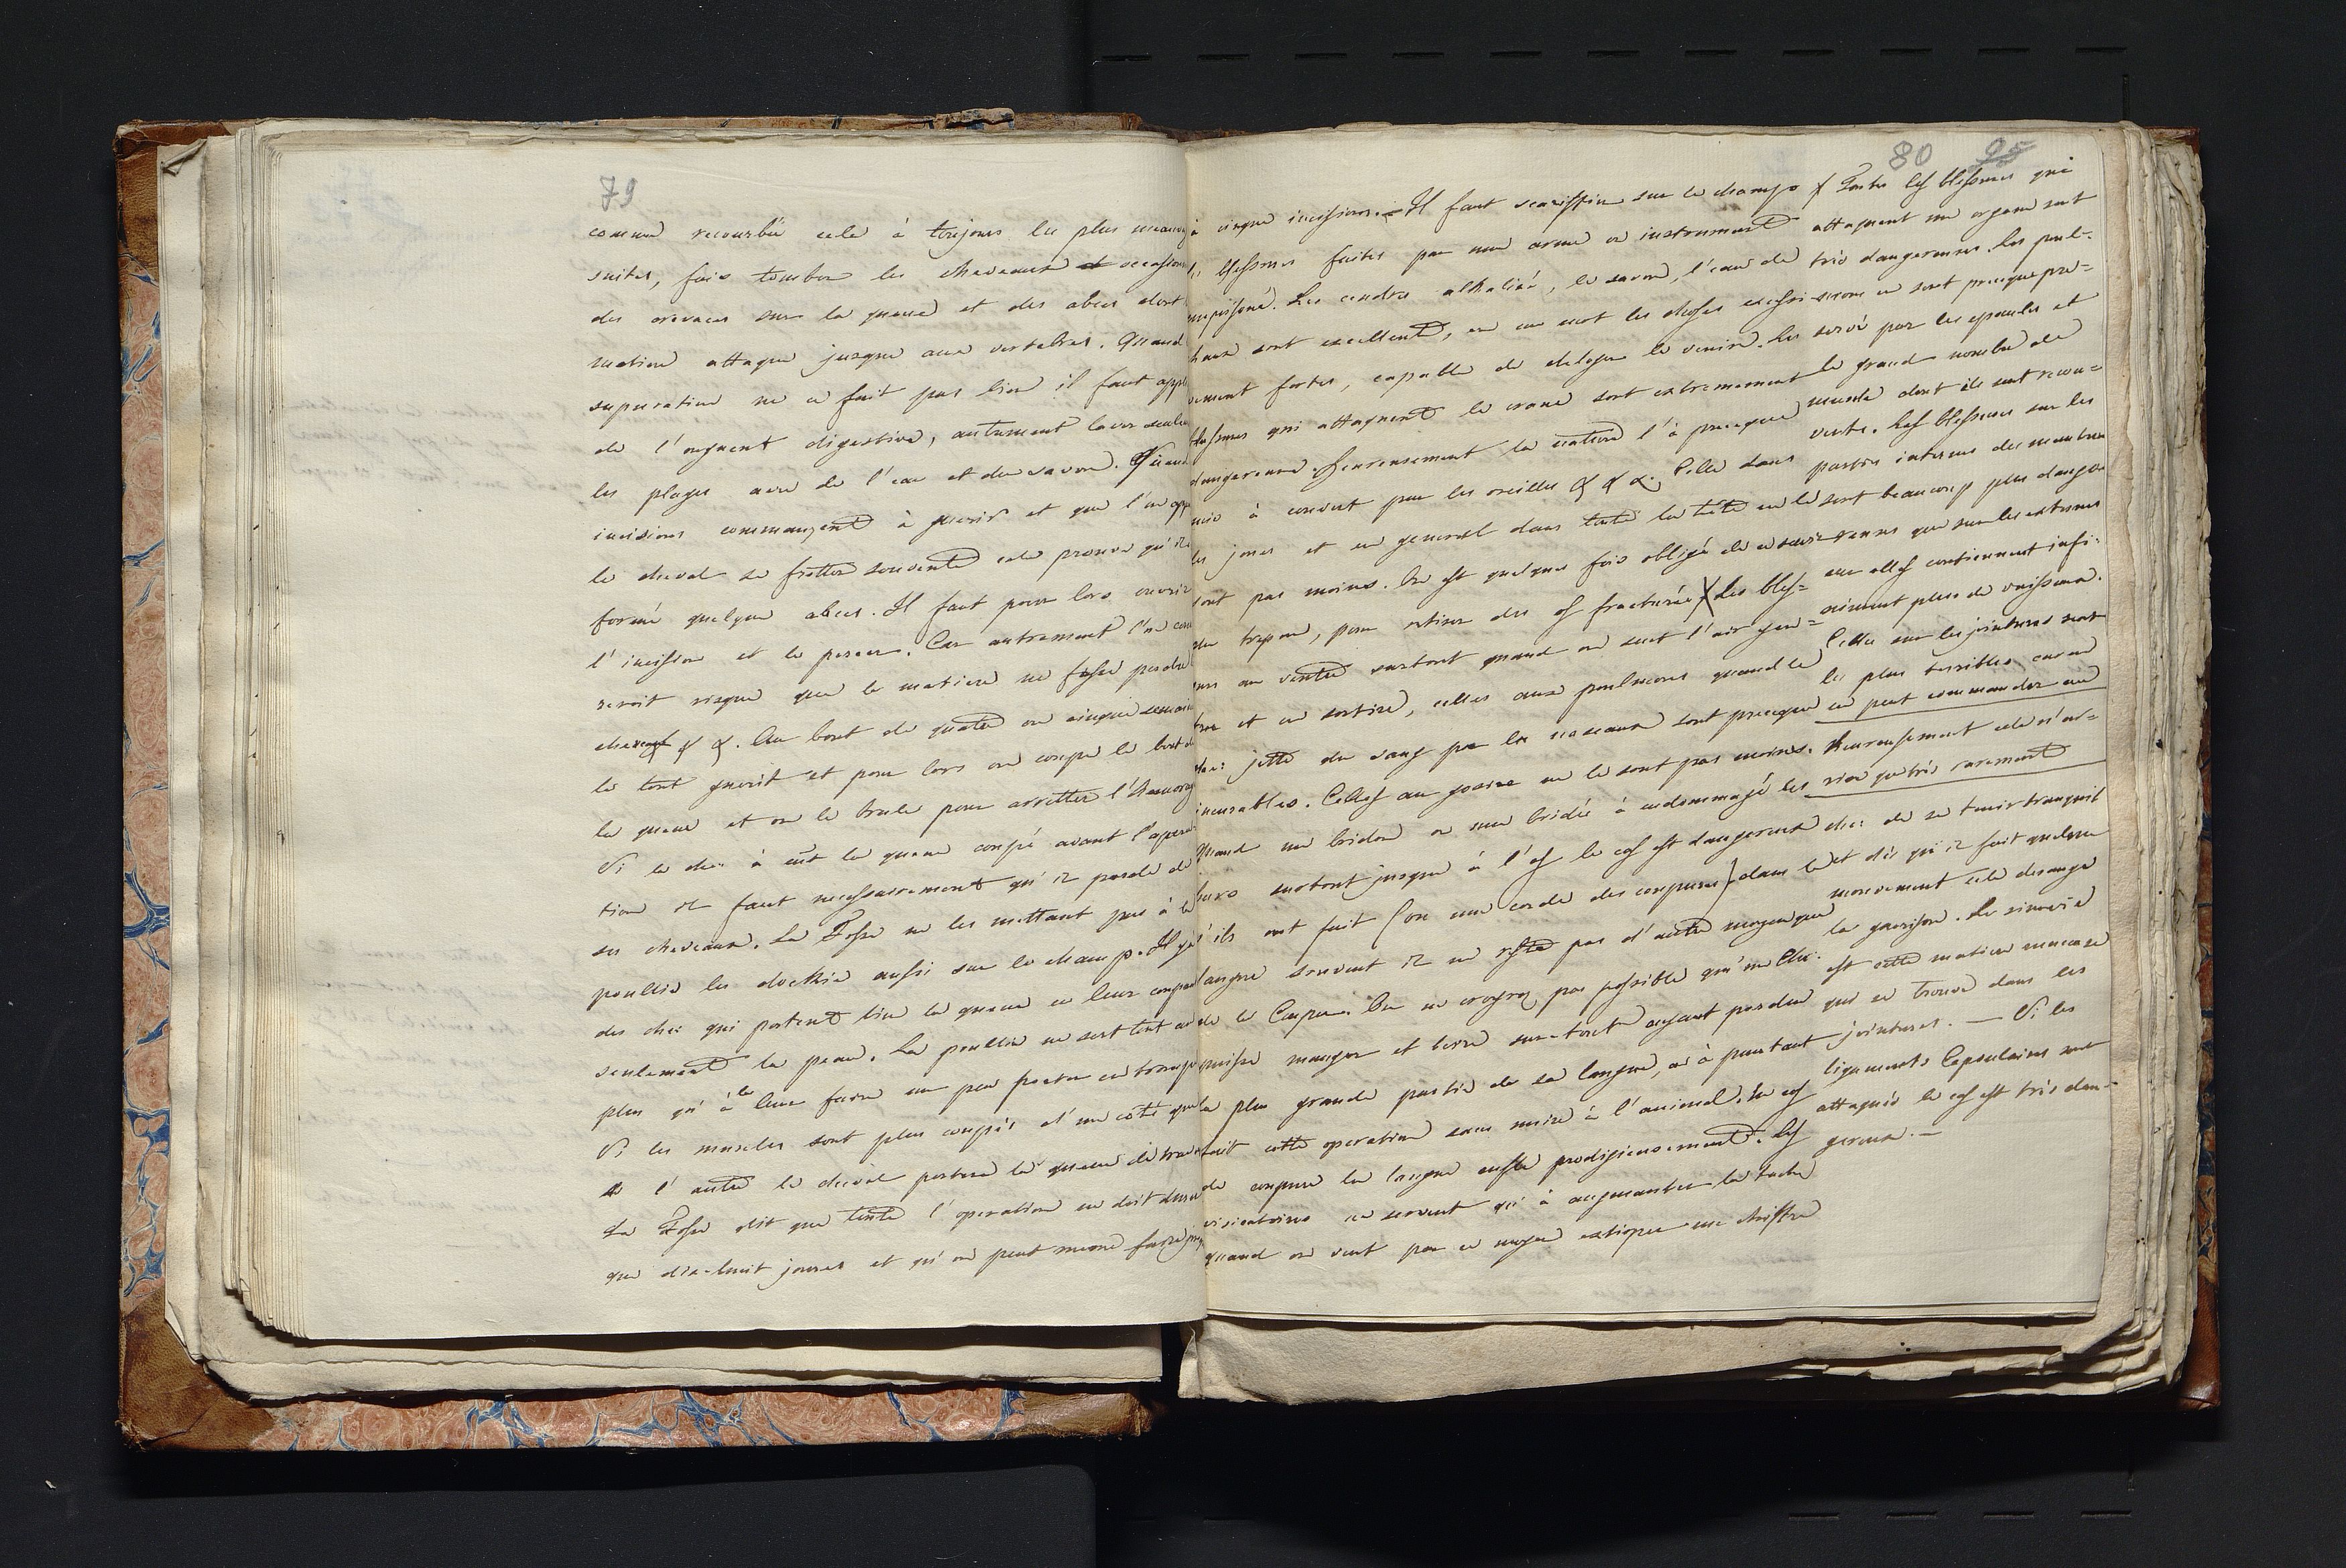 79
comme recourbée cela à toujours les plus mauvai
suites, fais tomber les cheveaux et occasion
des crevaces sur la queue et des abces dont
matiere attaque jusque aux vertebres. Quand
supuration ne ce fait pas bien il faut appli
de l'onguent digestive, autrement laver seulem
les playes avec de l'eau et du savon. Quand
incisions commançent à guerir et que l'on app
le cheval se frotter souvente cela prouve qu'il
formé quelque abces. Il faut pour lors ouvrir
l'incision et le percer. Car autrement l'on cour
reroit risque que la matiere ne fasse perdre
cheveaux & &. Au bout de quatre ou cinque semain
le tout guerit et pour lors on coupe le bout de
la queue et on le brule pour arretter l'hemorag
Si le che: à eut la queue coupé avant l'opera
tion il faut necessairement qu'il perde de
ses cheveaux. La Fosse ne les mettant pas à la
poullie les dockie aussi sur le champ. Il y a
des che: qui portent bien la queue en leur coupan
seulement la peau. La poullie ne sert tout au
plus qu'à la leur faire un peu porter en trompe
Si les muscles sont plus coupés d'un côté que
de l'autre le cheval portera la queue de travers
La Fosse dit que toute l'operation ne doit durer
que dix-huit jours et qu'on peut meme faire jusq
80 95
à cinque incisions. — Il faut scarifier sur le champ
les blessures faites par une arme ou instrument
empoisoné. Les cendres alkalisé, le savon, l'eau de
chaux sont excellent, en un mot les choses excessi-
vement fortes, capable de deloger le venin. Les
blessures qui attaquent le crane sont extremement
dangereuse. Heureusement la nature l'à presque
mis à couvert par les oreilles & & &. Celle dans
les joues et en general dans toute la tête ne le
sont pas moins. On est quelques fois obligé de se servir
du trepan, pour retirer des os fracturée X Les bles=
sures au ventre surtout quand on sent l'air y en=
trer et en sortire, celles aux poulmons quand le
che: jette du sang par les naseaux sont presque
incurables. Celles au gosier ne le sont pas moins.
Quand un bridon ou une bridée à endommagé les
bares surtout jusque à l'os le cas est dangereux
s'ils ont fait (ou une corde des coupures) dans la
langue souvent il ne reste pas d'autre moyen que
de la Couper. On ne croyroy pas possible qu'un Che:
puisse manger et boire surtout ayant perdue
la plus grande partie de sa langue, on à pourtant
fait cette operation sans nuire à l'animal. En cas
de coupure la langue enfle prodigieusement. Les
visicatoires ne servent qu'à augmanter la tache
quand on veut par ce moyen extirper un chiffre
X Toutes les blessures qui
attaquent un organe sont
très dangereuses. Les poul-
mons en sont presque pre=
servé par les epaules et
le grand nombre de
muscle dont ils sont recou=
verts. Les blessures sur les
parties internes des membres
sont beaucoup plus dange
reuses que sur les externes
car elles contiennent infi-
niment plus de vaisseaux.
Celles sur les jointures sont
les plus terribles car on
ne peut commander au
che: de se tenir tranquil
et dès qu'il fait quelque
mouvement cela derange
la guerison. Heureusement cela n'ar=
rive que très rarement
La sinovie
est cette matiere muceuse
qui se trouve dans les
jointures. — Si les
ligaments Capsulaires sont
attaqués le cas est très dan-
gereux. —